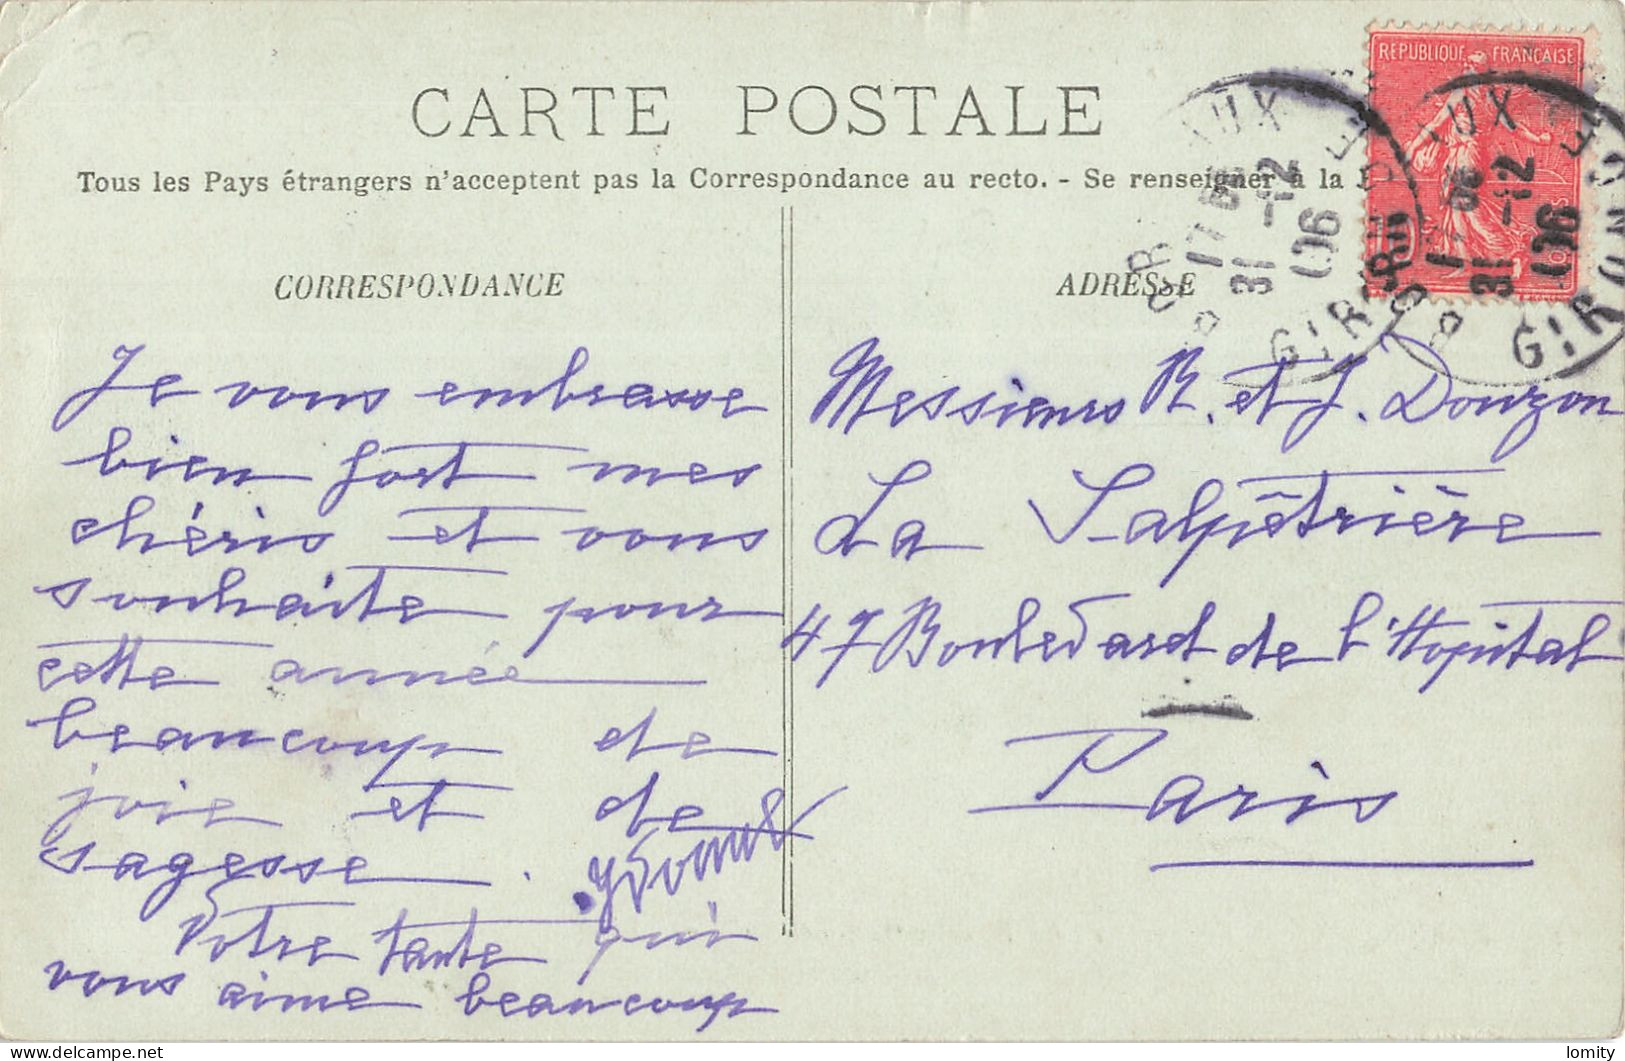 RÉPUBLIQUE FRANÇAISE
CARTE POSTALE
Tous les Pays étrangers n'acceptent pas la Correspondance au recto. - Se renseigner à la
CORRESPONDANCE
Je vous embrasse
bien fort mes
chéris et vous
souhaite pour
cette année
beaucoup de
joie et de
sagesse.
Yvonne
Votre tante qui
vous aime beaucoup
ADRESSE
Messieurs R. et J. Douzon
La Salpêtrière
47 Boulevard de l'Hopital
Paris
31 -12
06
GIR
31 -12
06
GIRON
lomity